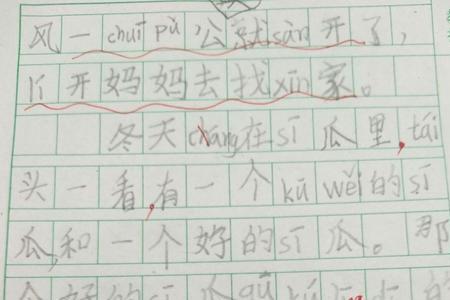 风一chuī pù公就sàn开了，
lí开妈妈去找xīn家。
冬天cháng在sī瓜里，tái
头一看，有一个kū wěi的sī
瓜，和一个好的sī瓜。那
个好的sī瓜